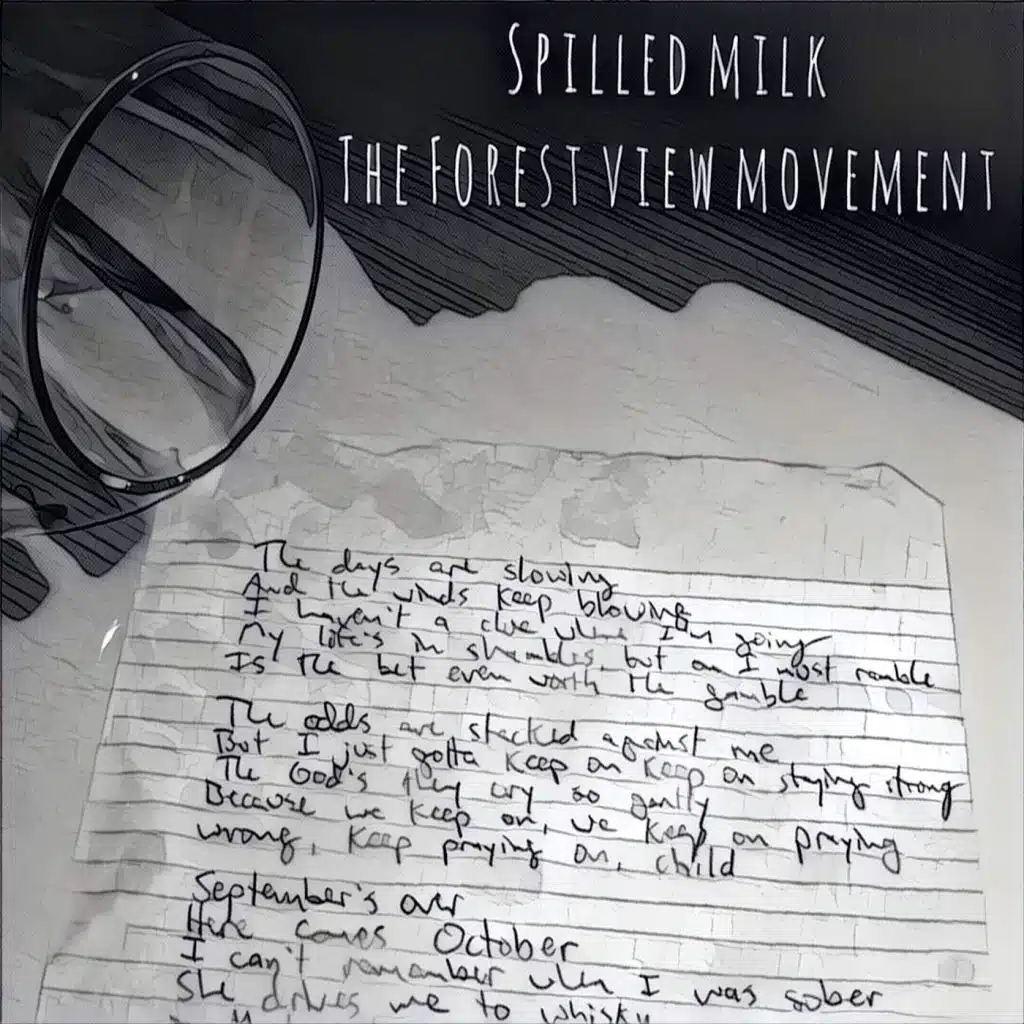 SPILLED MILK
THE FOREST VIEW MOVEMENT
The days are slowing
And the winds keep blowing
I haven't a clue where I'm going
My life's in shambles, but on I must ramble
Is the bet even worth the gamble
The odds are stacked against me
But I just gotta keep on keep on staying strong
The God's they cry so gently
Because we keep on, we keep on praying
wrong, keep praying on, child
September's over
Here comes October
I can't remember when I was sober
She drives me to whisky